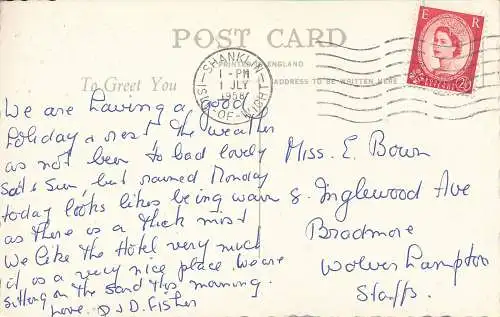 POST CARD
PRINTED IN ENGLAND
To Greet You
ADDRESS TO BE WRITTEN HERE
SHANKLIN
1 - PM
1 JLY
1958
ISLE-OF-WIGHT
E R
2½D
We are having a good
holiday & rest the weather
as not been to bad lovely
Sat & Sun, but rained Monday
today looks likes being warm
as there is a thick mist
We like the Hotel very much
it is a very nice place We are
sitting on the sand this morning.
Love. D & D. Fisher
Miss. E. Bown
8. Inglewood Ave
Bradmore
Wolverhampton
Staffs.